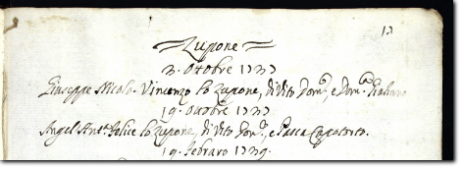 13
Zupone
3. Ottobre 1737
Giuseppe Nicolò Vincenzo lo Zupone, di Vito Dom.co, e Dom.ca
19. Ottobre 1737
Angel' Ant.o Felice lo Zupone, di Vito Dom.co, e Pasca
19. Febraro 1739.